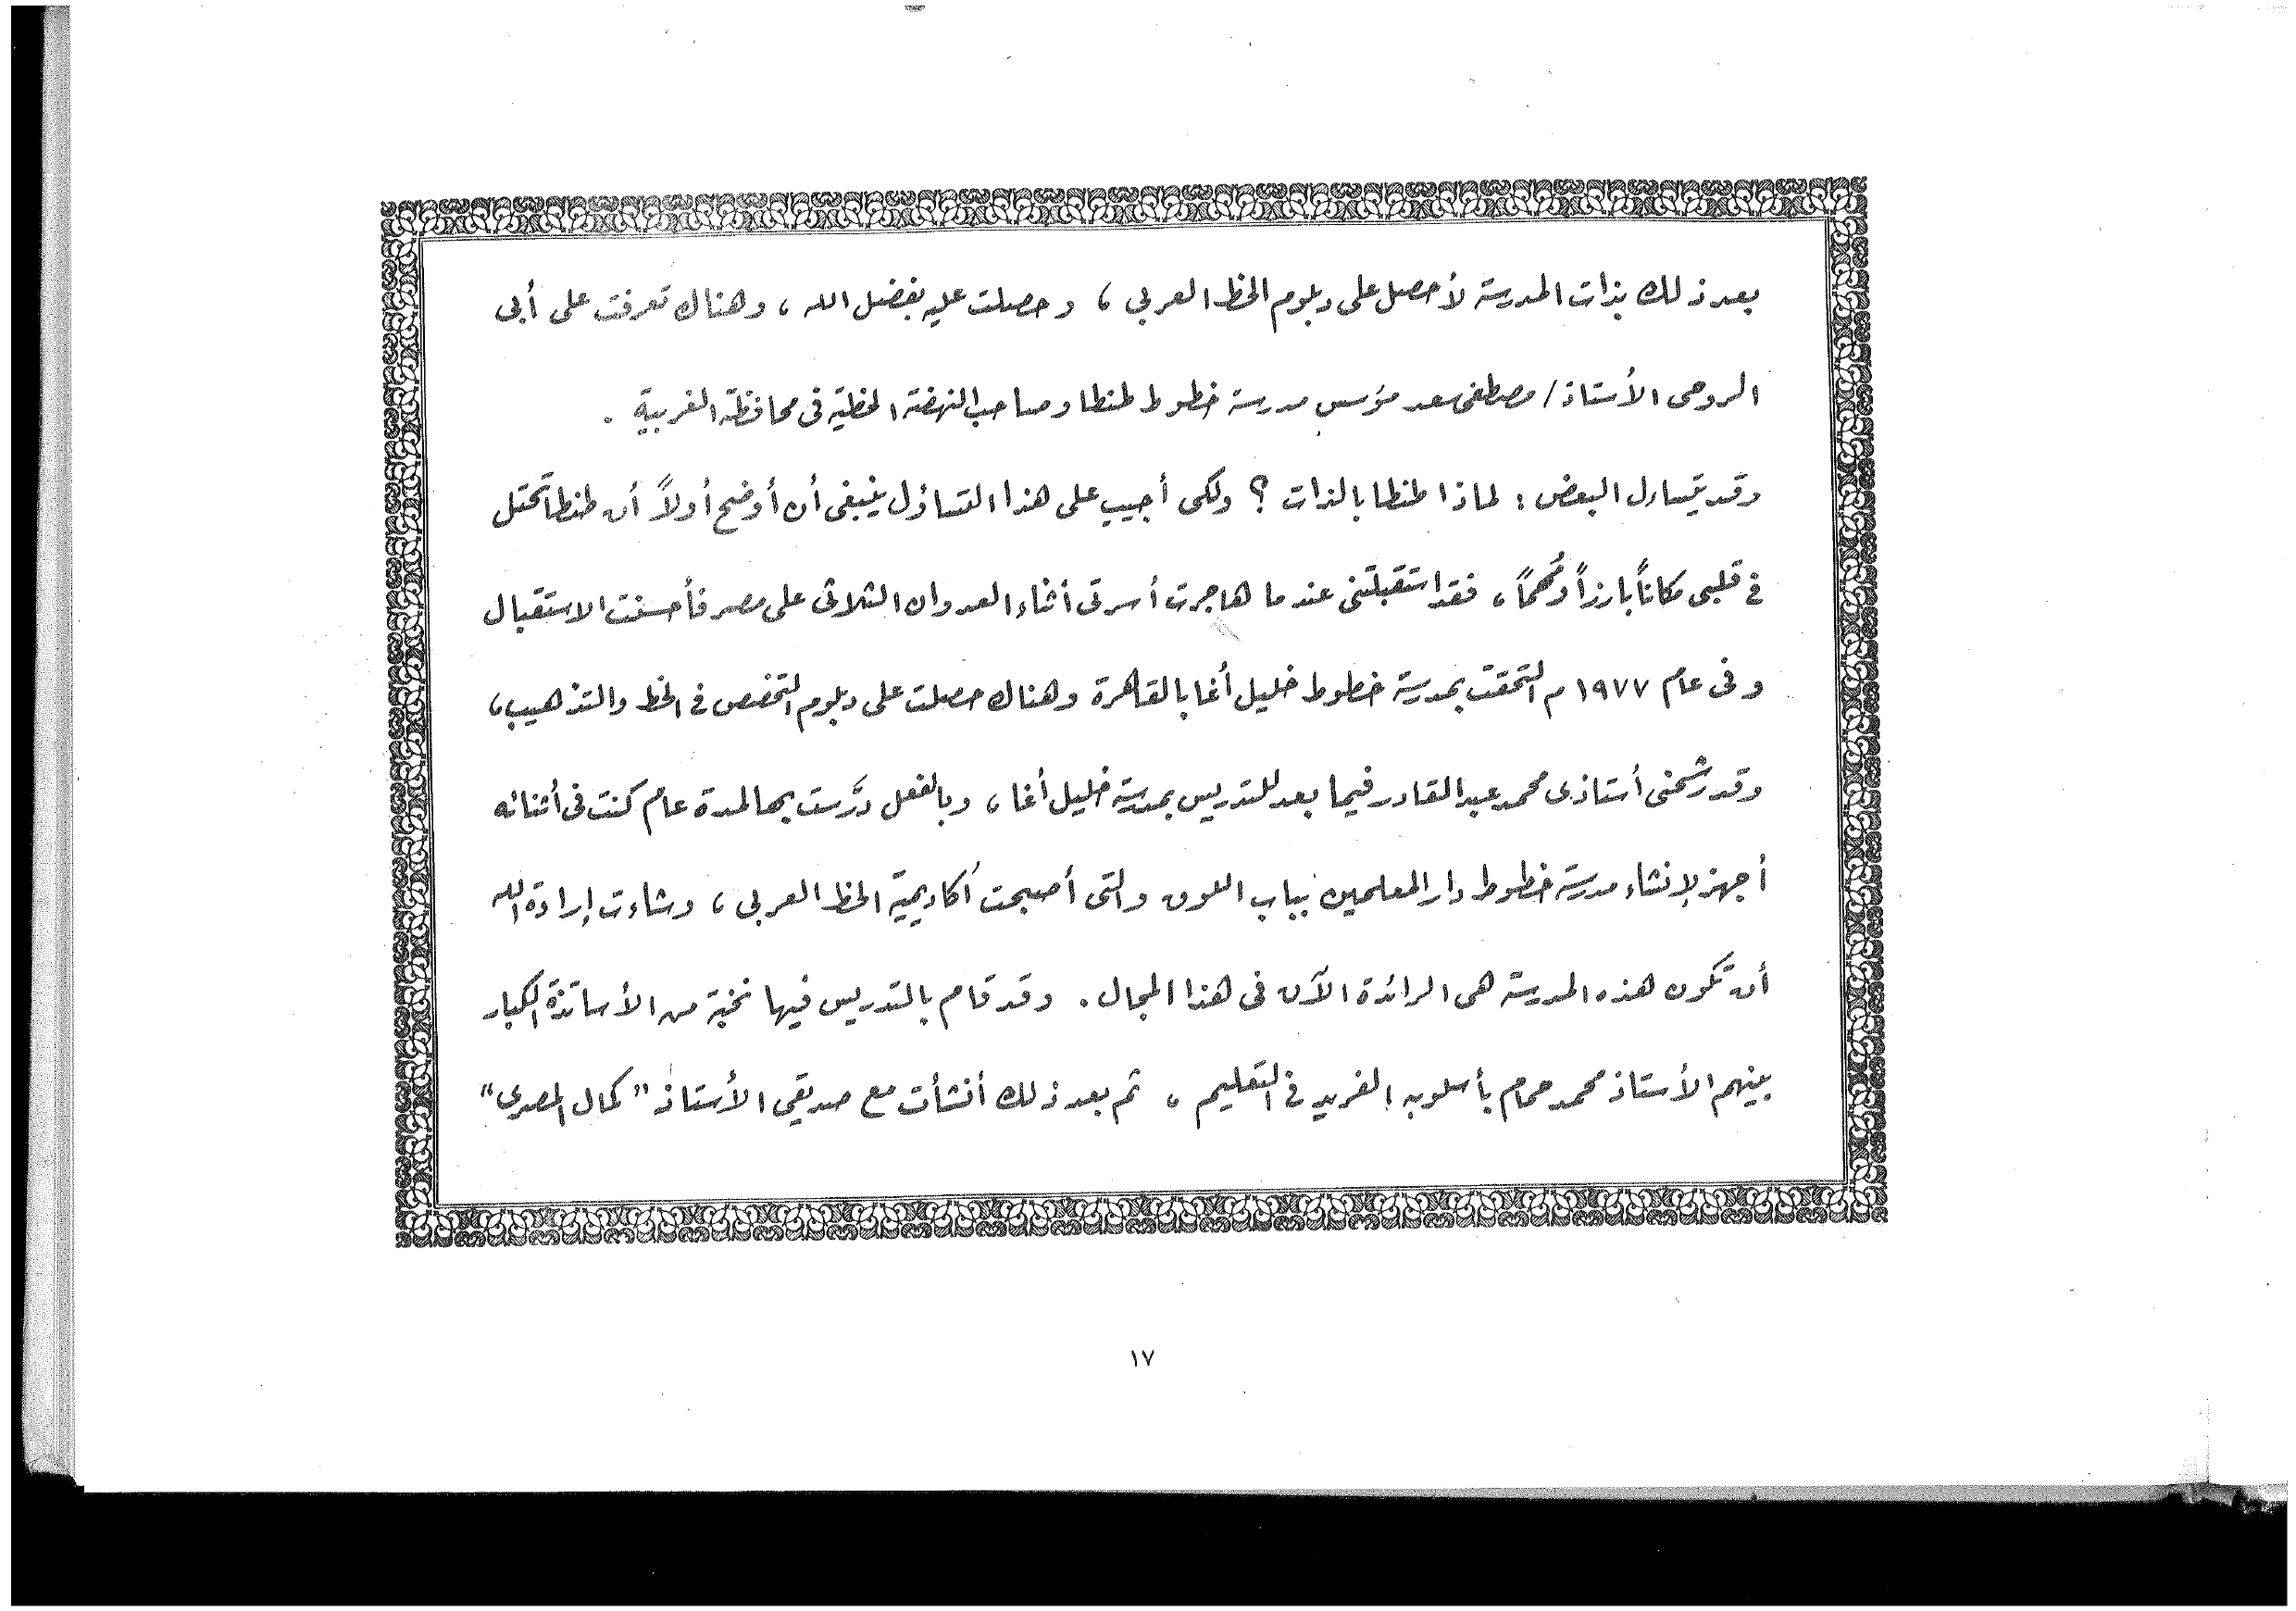 بعد ذلك بذات المدرسة لأحصل على دبلوم الخط العربى ، وحصلت عليه بفضل الله ، وهناك تعرفت على أبى
الروحى الأستاذ / مصطفى سعد مؤسس مدرسة خطوط طنطا وصاحب النهضة الخطية فى محافظة الغربية .
وقد يتساءل البعض : لماذا طنطا بالذات ؟ ولكى أجيب على هذا التساؤل ينبغى أن أوضح أولاً أن طنطا تحتل
فى قلبى مكاناً بارزاً ومُهماً ، فقد استقبلتنى عندما هاجرت أسرتى أثناء العدوان الثلاثى على مصر فأحسنت الاستقبال
وفى عام ١٩٧٧ م التحقت بمدرسة خطوط خليل أغا بالقاهرة وهناك حصلت على دبلوم التخصص فى الخط والتذهيب ،
وقد رشحنى أستاذى محمد عبد القادر فيما بعد للتدريس بمدرسة خليل أغا ، وبالفعل درَّست بها لمدة عام كنت فى أثنائه
أجهز لإنشاء مدرسة خطوط دار المعلمين بباب اللوق والتى أصبحت أكاديمية الخط العربى ، وشاءت إرادة الله
أن تكون هذه المدرسة هى الرائدة الآن فى هذا المجال . وقد قام بالتدريس فيها نخبة من الأساتذة الكبار
بينهم الأستاذ محمد حمام بأسلوبه الفريد فى التعليم ، ثم بعد ذلك أنشأت مع صديقى الأستاذ " كمال المصرى "
١٧